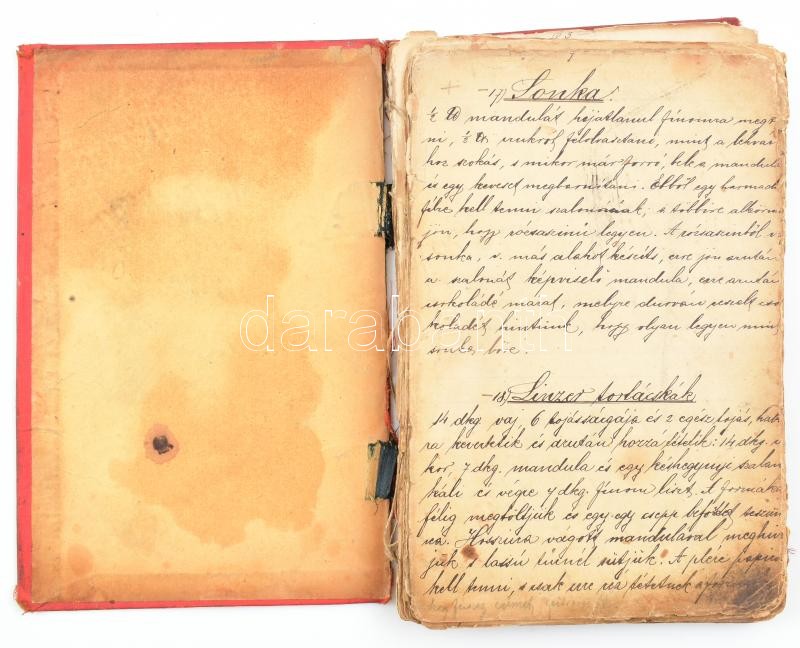 17) Sonka.
½ ℔ mandulát héjatlanul finomra megt
ni, ½ ℔ cukrot felolvasztani, mint a
hoz szokás, s mikor már forró, bele a mandula
és egy keveset megbarnítani. Ebből egy harmad
félre kell tenni szalonnának, a többire
jön, hogy rózsaszinü legyen. A rózsaszinből
sonka, v. más alakot készíts, erre jön azután
a szalonát képviselő mandula, erre azután
csokoládé mázat, melyre durván reszelt cso
koládét hintünk, hogy olyan legyen mint
sonka bőre.
18) Linzer tortácskák
14 dkg vaj 6 tojássárgája és 2 egész tojás, hab
ra kevertetik és azután hozzá tétetik: 14 dkg. c
kor, 7 dkg. mandula és egy késhegynyi szalan
káli és végre 7 dkg. finom liszt. A formák
félig megtöltjük és egy egy csepp befőttet teszün
rea. Hosszúra vágott mandulával meghin
jük s lassú tűznél sütjük. A plére papiro
kell tenni, s csak erre reá tétetnek a
darabanth